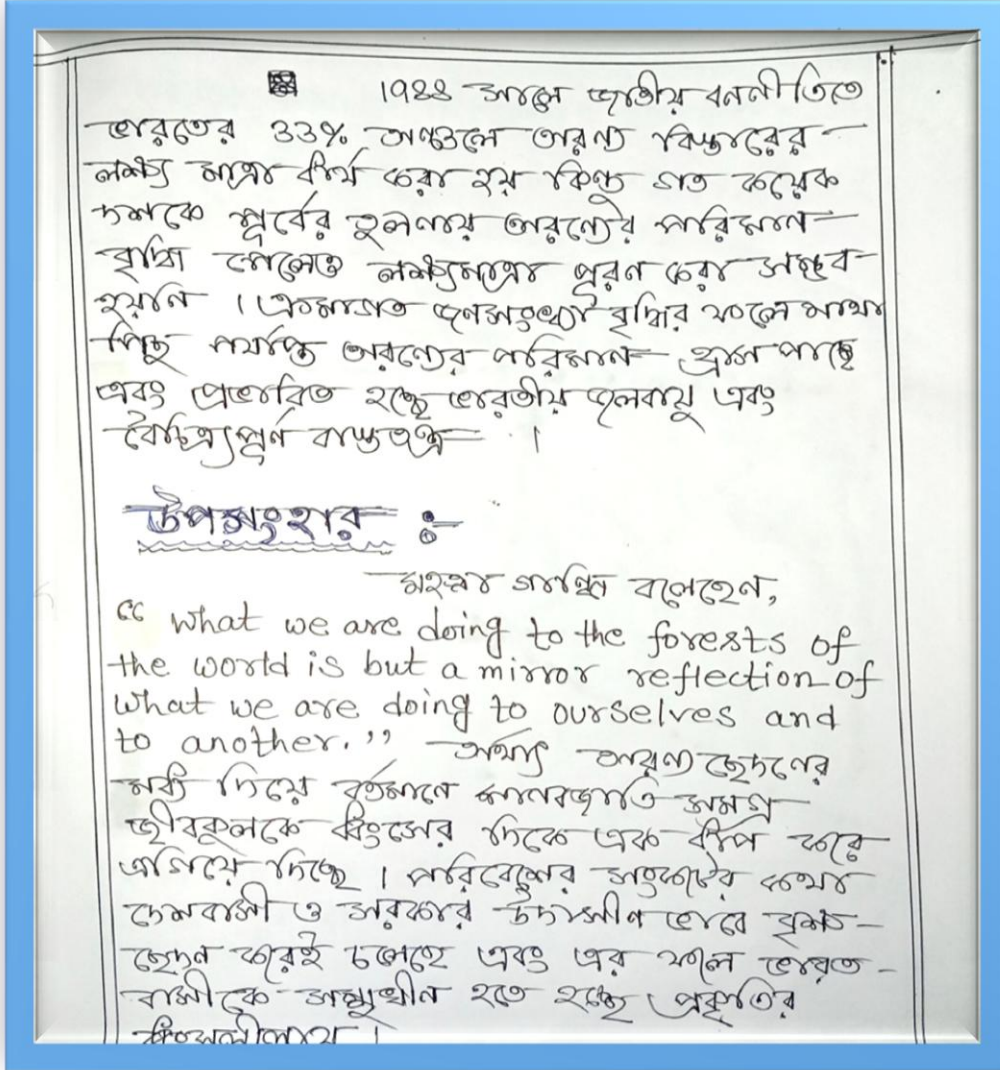 1988 সালে জাতীয় বননীতিতে
ভারতের 33% অঞ্চলে অরণ্য বিস্তারের
লক্ষ্য মাত্রা ধার্য করা হয় কিন্তু গত কয়েক
দশকে পূর্বের তুলনায় অরণ্যের পরিমান
বৃদ্ধি পেলেও লক্ষ্যমাত্রা পূরণ করা সম্ভব
হয়নি । ক্রমাগত জনসংখ্যা বৃদ্ধির ফলে মাথা
পিছু পর্যাপ্ত অরণ্যের পরিমান হ্রাস পাচ্ছে
এবং প্রভাবিত হচ্ছে ভারতীয় জলবায়ু এবং
বৈচিত্র্যপূর্ণ বাস্তুতন্ত্র ।
উপসংহার :-
মহত্মা গান্ধি বলেছেন,
“ What we are doing to the forests of
the world is but a mirror reflection of
what we are doing to ourselves and
to another. ” অর্থাৎ অরণ্যছেদনের
মধ্য দিয়ে বর্তমানে মানবজাতি সমগ্র
জীবকূলকে ধ্বংসের দিকে এক ধাপ করে
এগিয়ে দিচ্ছে । পরিবেশের সংকটের কথা
দেশবাসী ও সরকার উদাসীন ভাবে বৃক্ষ-
ছেদন করেই চলেছে এবং এর ফলে ভারত-
বাসীকে সম্মুখীন হতে হচ্ছে প্রকৃতির
ধ্বংসলীলায় ।